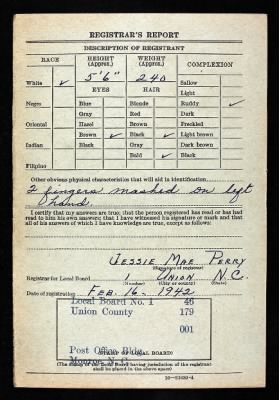 REGISTRAR'S REPORT
DESCRIPTION OF REGISTRANT
RACE HEIGHT (Approx.) WEIGHT (Approx.) COMPLEXION
White ✓ 5'6" 240 Sallow
Light
EYES HAIR
Negro Blue Blonde Ruddy ✓
Gray Red Dark
Oriental Hazel Brown Freckled
Brown ✓ Black ✓ Light brown
Indian Black Gray Dark brown
Bald ✓ Black
Filipino
Other obvious physical characteristics that will aid in identification
2 fingers mashed on left
hand.
I certify that my answers are true; that the person registered has read or has had
read to him his own answers; that I have witnessed his signature or mark and that
all of his answers of which I have knowledge are true, except as follows:
Jessie Mae Perry
(Signature of registrar)
Registrar for Local Board 1 Union N.C.
(Number) (City or county) (State)
Date of registration Feb. 16 - 1942
Local Board No. 1 46
Union County 179
001
Post Office Bldg.
Monroe, N. C.
(STAMP OF LOCAL BOARD)
(The stamp of the Local Board having jurisdiction of the registrant
shall be placed in the above space)